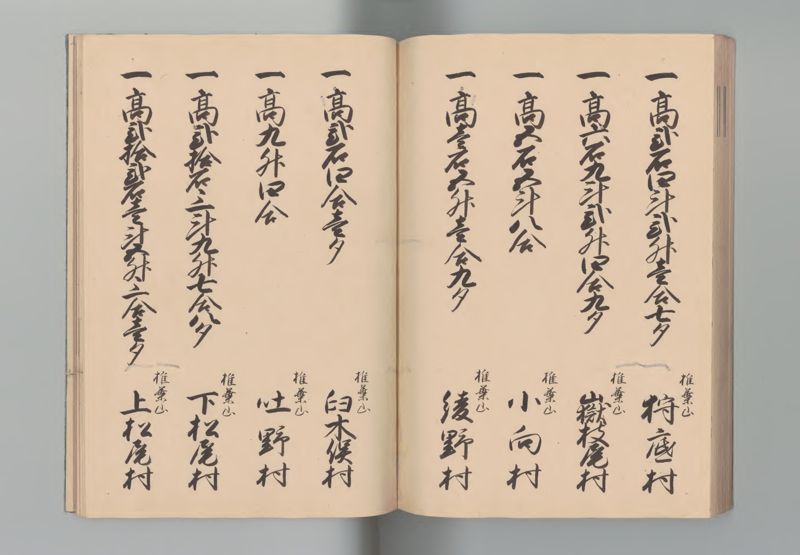 一 高弐石四斗弐升壱合七夕
椎葉山
栂底村
一 高六石九斗弐升四合九夕
椎葉山
嶽枝尾村
一 高五石五斗八合
椎葉山
小向村
一 高壱石五升壱合九夕
椎葉山
綾野村
一 高弐石四合壱夕
椎葉山
臼木俣村
一 高九升四合
椎葉山
吐野村
一 高弐拾石二斗九升七合八夕
椎葉山
下松尾村
一 高弐拾弐石壱斗五升二合壱夕
椎葉山
上松尾村